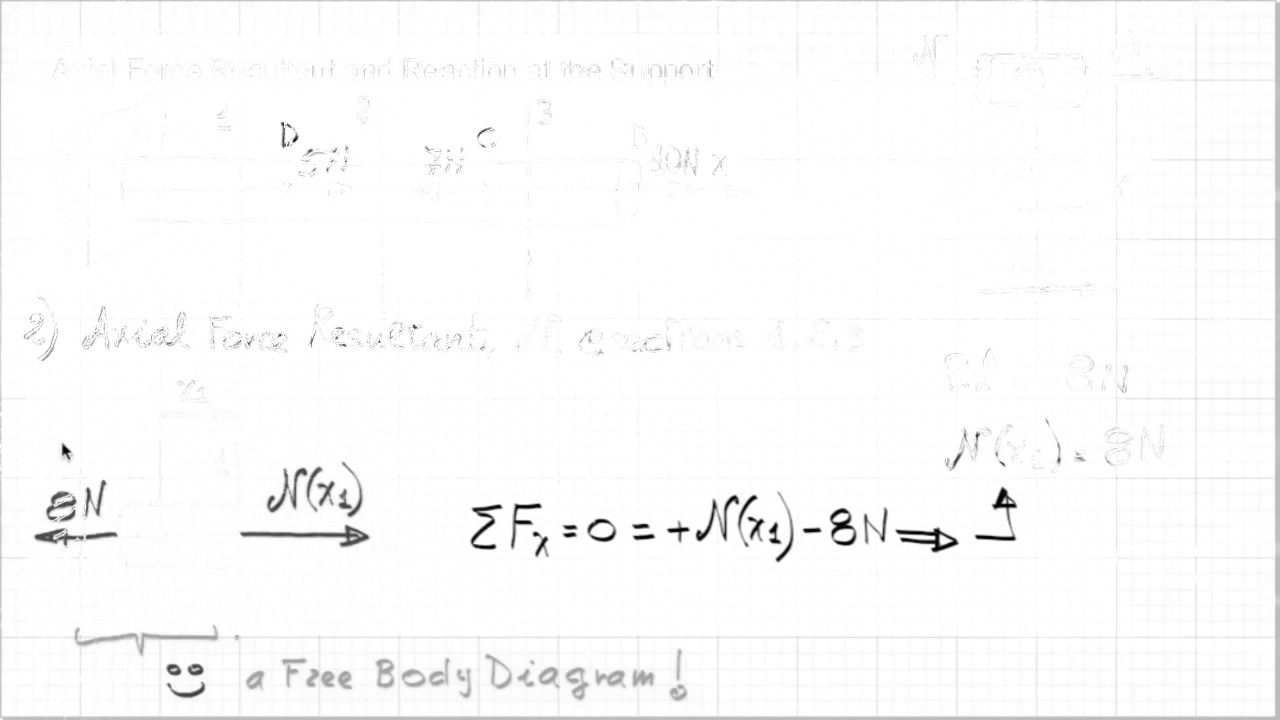 Axial Force Resultant and Reaction at the Support
N
1 2 3
D C B
5N 7N 10N x
2) Axial Force Resultant, N, @ sections 1,2,3
x1
1
= -8N
N(x1) = 8N
8N N(x1) ΣFx = 0 = +N(x1) - 8N ⇒
a Free Body Diagram!